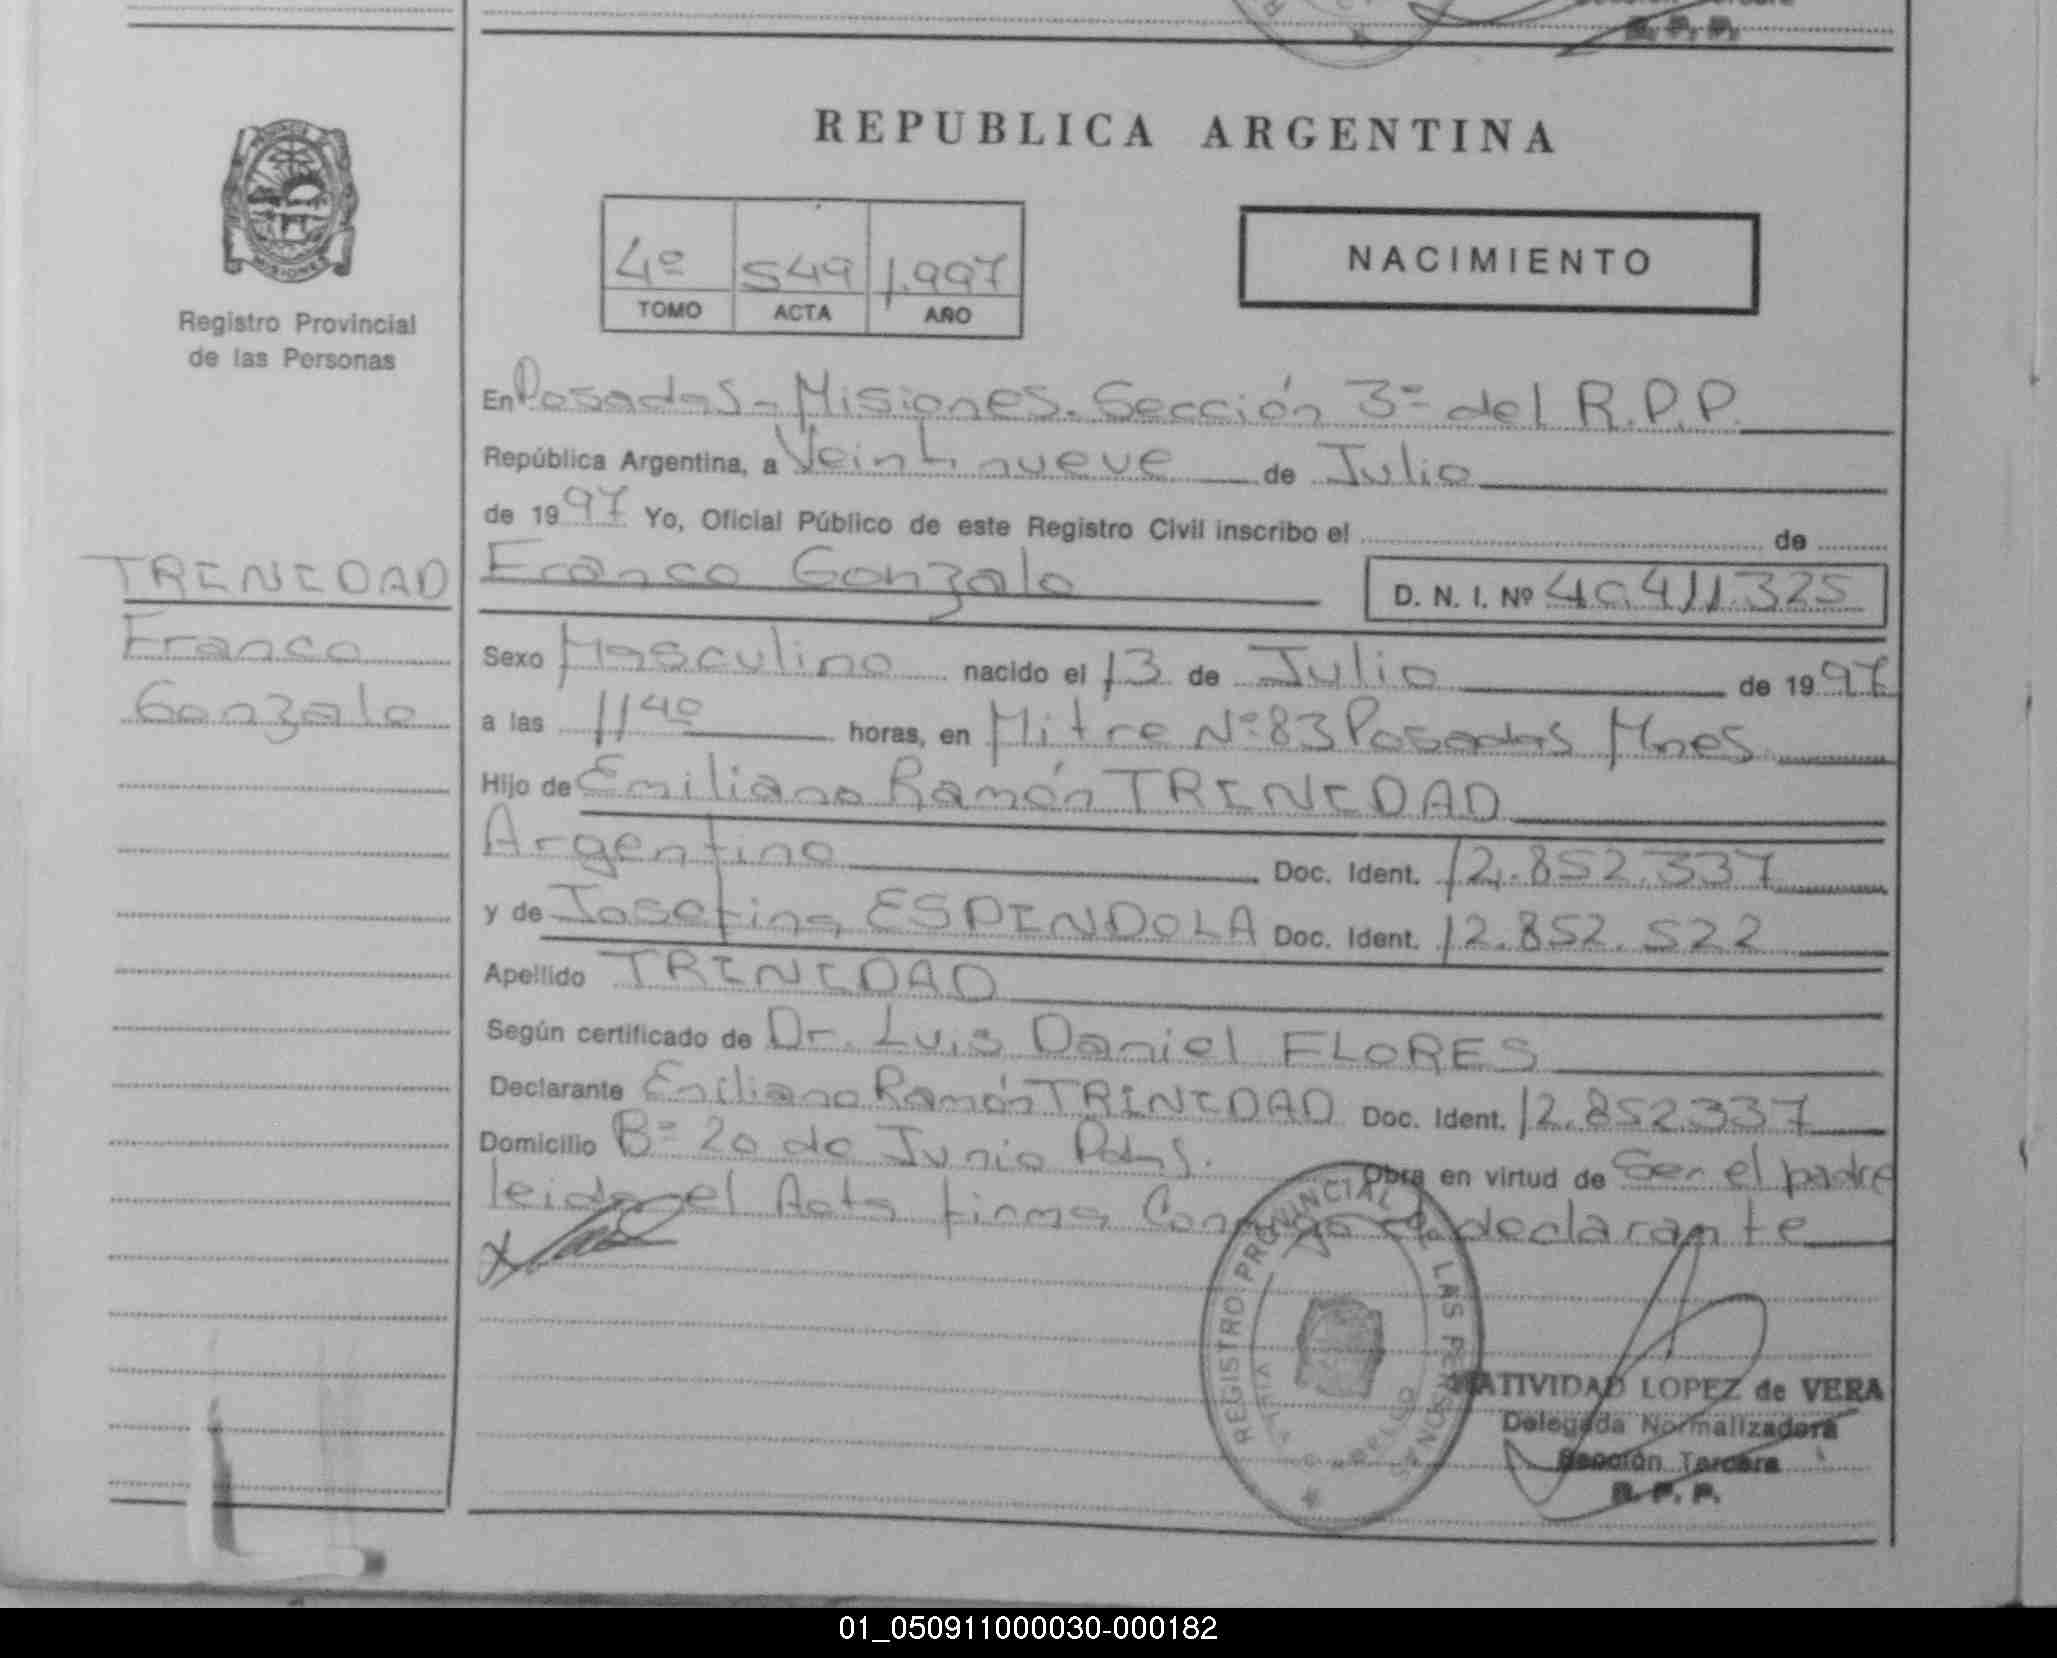 R. P. P.
REPUBLICA ARGENTINA
MISIONES
Registro Provincial
de las Personas
4º 549 1.997
TOMO ACTA AÑO
NACIMIENTO
En Posadas - Misiones. Sección 3ª del R.P.P.
República Argentina, a Veintinueve de Julio
de 1997 Yo, Oficial Público de este Registro Civil inscribo el de
Franco Gonzalo D. N. I. Nº 40.411.325
TRINIDAD
Franco
Gonzalo
Sexo Masculino nacido el 13 de Julio de 1997
a las 11 40 horas, en Mitre Nº 83 Posadas Mnes.
Hijo de Emiliano Ramón TRINIDAD
Argentino Doc. Ident. 12.852.337
y de Josefina ESPINDOLA Doc. Ident. 12.852.522
Apellido TRINIDAD
Según certificado de Dr. Luis Daniel FLORES
Declarante Emiliano Ramón TRINIDAD Doc. Ident. 12.852337
Domicilio Bº 20 de Junio Pdas. Obra en virtud de Ser el padre
leida el Acta firma Conmigo el declarante
REGISTRO PROVINCIAL DE LAS PERSONAS
NATIVIDAD LOPEZ de VERA
Delegada Normalizadora
Sección Tercera
R. P. P.
01_050911000030-000182